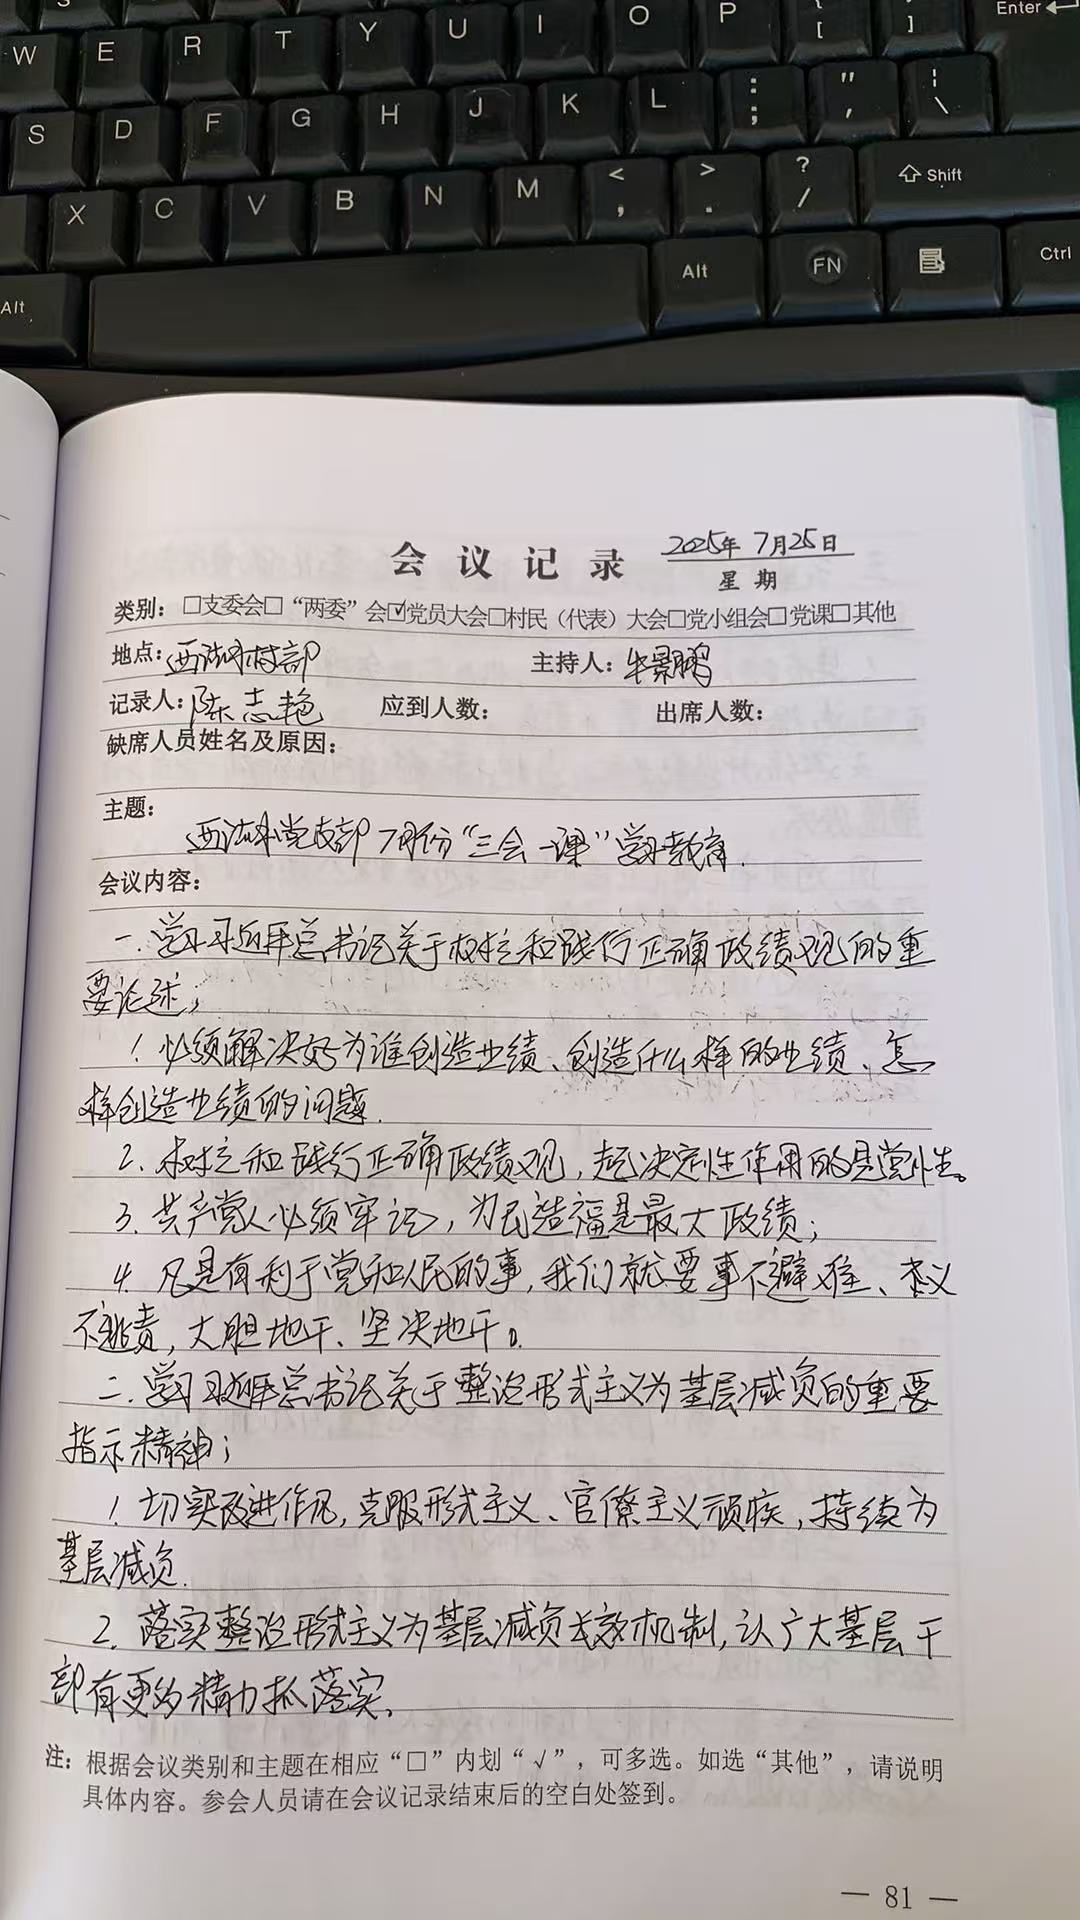 S
W E R T Y U I O P { [ } ] Enter
S D F G H J K L : ; " ' ¦ \
X C V B N M < , > . ? / Shift
Alt Alt FN Ctrl
会议记录 2025年7月25日
星期
类别：□支委会□“两委”会☑党员大会□村民（代表）大会□党小组会□党课□其他
地点：西沟村部 主持人：牛景鹏
记录人：陈志艳 应到人数： 出席人数：
缺席人员姓名及原因：
主题：
党支部7月份“三会一课”学习教育.
会议内容：
一.学习习近平总书记关于树立和践行正确政绩观的重
要论述；
1.必须解决好为谁创造业绩、创造什么样的业绩、怎
样创造业绩的问题.
2.树立和践行正确政绩观，起决定性作用的是党性。
3.共产党人必须牢记，为民造福是最大政绩；
4.凡是有利于党和人民的事，我们就要事不避难、义
不逃责，大胆地干、坚决地干。
二.学习习近平总书记关于整治形式主义为基层减负的重要
指示精神；
1.切实改进作风，克服形式主义、官僚主义顽疾，持续为
基层减负.
2.落实整治形式主义为基层减负长效机制，让广大基层干
部有更多精力抓落实.
注：根据会议类别和主题在相应“□”内划“√”，可多选。如选“其他”，请说明
具体内容。参会人员请在会议记录结束后的空白处签到。
— 81 —